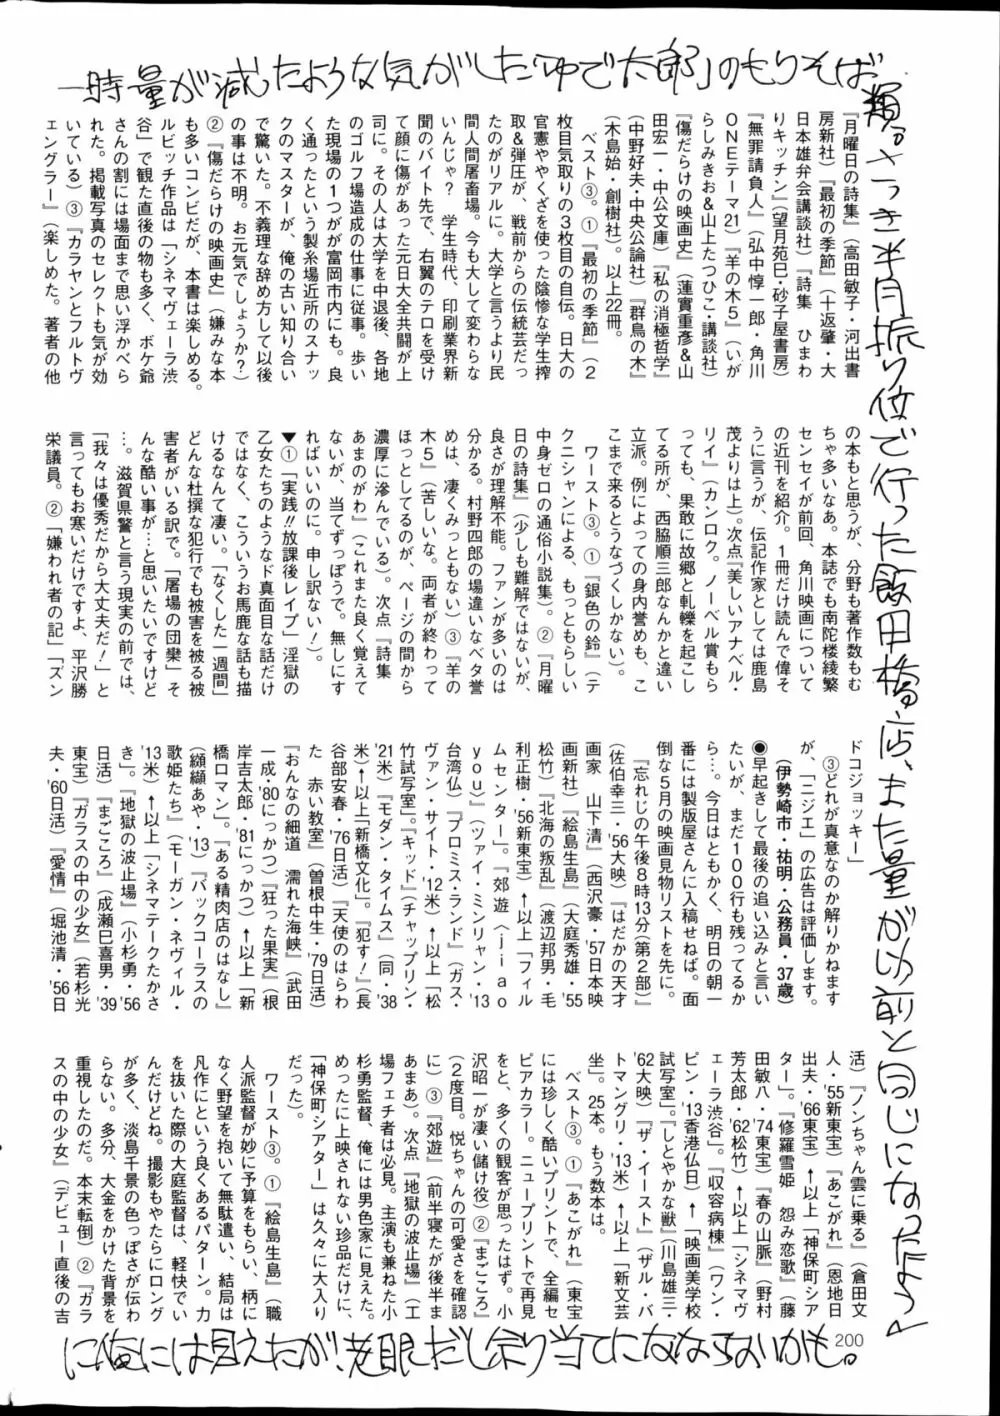 一時量が減ったような気がした「ゆで太郎」のもりそば
類。さっき半月振り位で行った飯田橋店、また量が以前と同じになったよう
に俺には見えたが、老眼だし余り当てにならないかも。
『月曜日の詩集』(高田敏子・河出書
房新社)『最初の季節』(十返肇・大
日本雄弁会講談社)『詩集 ひまわ
りキッチン』(望月苑巳・砂子屋書房)
『無罪請負人』(弘中惇一郎・角川
ONEテーマ21)『羊の木5』(いが
らしみきお&山上たつひこ・講談社)
『傷だらけの映画史』(蓮實重彦&山
田宏一・中公文庫)『私の消極哲学』
(中野好夫・中央公論社)『群鳥の木』
(木島始・創樹社)。以上22冊。
ベスト③。①『最初の季節』(2
枚目気取りの3枚目の自伝。日大の
官憲ややくざを使った陰惨な学生搾
取&弾圧が、戦前からの伝統芸だっ
たのがリアルに。大学と言うより民
間人間屠畜場。今も大して変わらな
いんじゃ? 学生時代、印刷業界新
聞のバイト先で、右翼のテロを受け
て顔に傷があった元日大全共闘が上
司に。その人は大学を中退後、各地
のゴルフ場造成の仕事に従事。歩い
た現場の1つがが富岡市内にも。良
く通ったという製糸場近所のスナッ
クのマスターが、俺の古い知り合い
で驚いた。不義理な辞め方して以後
の事は不明。お元気でしょうか?)
②『傷だらけの映画史』(嫌みな本
も多いコンビだが、本書は楽しめる。
ルビッチ作品は「シネマヴェーラ渋
谷」で観た直後の物も多く、ボケ爺
さんの割には場面まで思い浮かべら
れた。掲載写真のセレクトも気が効
いている)③『カラヤンとフルトヴ
ェングラー』(楽しめた。著者の他
の本もと思うが、分野も著作数もむ
ちゃ多いなあ。本誌でも南陀楼綾繁
センセイが前回、角川映画について
の近刊を紹介。1冊だけ読んで偉そ
うに言うが、伝記作家としては鹿島
茂よりは上)。次点『美しいアナベル・
リイ』(カンロク。ノーベル賞もら
っても、果敢に故郷と軋轢を起こし
てる所が、西脇順三郎なんかと違い
立派。例によっての身内誉めも、こ
こまで来るとうなづくしかない)。
ワースト③。①『銀色の鈴』(テ
クニシャンによる、もっともらしい
中身ゼロの通俗小説集)。②『月曜
日の詩集』(少しも難解ではないが、
良さが理解不能。ファンが多いのは
分かる。村野四郎の場違いなベタ誉
めは、凄くみっともない)③『羊の
木5』(苦しいな。両者が終わって
ほっとしてるのが、ページの間から
濃厚に滲んでいる)。次点『詩集
あまのがわ』(これまた良く覚えて
ないが、当てずっぽうで。無しにす
ればいいのに。申し訳ない!)。
▼①「実践!!放課後レイプ」淫獄の
乙女たちのようなド真面目な話だけ
ではなく、こういうお馬鹿な話も描
けるなんて凄い。「なくした一週間」
どんな杜撰な犯行でも被害を被る被
害者がいる訳で。「屠場の団欒」そ
んな酷い事が…と思いたいですけど
…。滋賀県警と言う現実の前では、
「我々は優秀だから大丈夫だ!」と
言ってもお寒いだけですよ、平沢勝
栄議員。②「嫌われ者の記」「ズン
ドコジョッキー」
③どれが真意なのか解りかねます
が、「ニジエ」の広告は評価します。
(伊勢崎市・祐明・公務員・37歳)
●早起きして最後の追い込みと言い
たいが、まだ100行も残ってるか
ら…。今日はともかく、明日の朝一
番には製版屋さんに入稿せねば。面
倒な5月の映画見物リストを先に。
『忘れじの午後8時13分(第2部)』
(佐伯幸三・'56大映)『はだかの天才
画家 山下清』(西沢豪・'57日本映
画新社)『絵島生島』(大庭秀雄・'55
松竹)『北海の叛乱』(渡辺邦男・毛
利正樹・'56新東宝)↑以上「フィル
ムセンター」。『郊遊(jiao
you)』(ツァイ・ミンリャン・'13
台湾仏)『プロミス・ランド』(ガス・
ヴァン・サイト・'12米)↑以上「松
竹試写室」。『キッド』(チャップリン・
'21米)『モダン・タイムス』(同・'38
米)↑以上「新橋文化」。『犯す!』(長
谷部安春・'76日活)『天使のはらわ
た 赤い教室』(曽根中生・'79日活)
『おんなの細道 濡れた海峡』(武田
一成・'80にっかつ)『狂った果実』(根
岸吉太郎・'81にっかつ)↑以上「新
橋ロマン」。『ある精肉店のはなし』
(纐纈あや・'13)『バックコーラスの
歌姫たち』(モーガン・ネヴィル・
'13米)↑以上「シネマテークたかさ
き」。『地獄の波止場』(小杉勇・'56
日活)『まごころ』(成瀬巳喜男・'39
東宝)『ガラスの中の少女』(若杉光
夫・'60日活)『愛情』(堀池清・'56日
活)『ノンちゃん雲に乗る』(倉田文
人・'55新東宝)『あこがれ』(恩地日
出夫・'66東宝)↑以上「神保町シア
ター」。『修羅雪姫 怨み恋歌』(藤
田敏八・'74東宝)『春の山脈』(野村
芳太郎・'62松竹)↑以上「シネマヴ
ェーラ渋谷」。『収容病棟』(ワン・
ビン・'13香港仏日)↑「映画美学校
試写室」。『しとやかな獣』(川島雄三・
'62大映)『ザ・イースト』(ザル・バ
トマングリ・'13米)↑以上「新文芸
坐」。25本。もう数本は。
ベスト③。①『あこがれ』(東宝
には珍しく酷いプリントで、全編セ
ピアカラー。ニュープリントで再見
をと、多くの観客が思ったはず。小
沢昭一が凄い儲け役)②『まごころ』
(2度目。悦ちゃんの可愛さを確認
に)③『郊遊』(前半寝たが後半ま
あまあ)。次点『地獄の波止場』(工
場フェチ者は必見。主演も兼ねた小
杉勇監督、俺には男色家に見えた。
めったに上映されない珍品だけに、
「神保町シアター」は久々に大入り
だった)。
ワースト③。①『絵島生島』(職
人派監督が妙に予算をもらい、柄に
なく野望を抱いて無駄遣い、結局は
凡作にという良くあるパターン。力
を抜いた際の大庭監督は、軽快でい
んだけどね。撮影もやたらにロング
が多く、淡島千景の色っぽさが伝わ
らない。多分、大金をかけた背景を
重視したのだ。本末転倒)②『ガラ
スの中の少女』(デビュー直後の吉
200